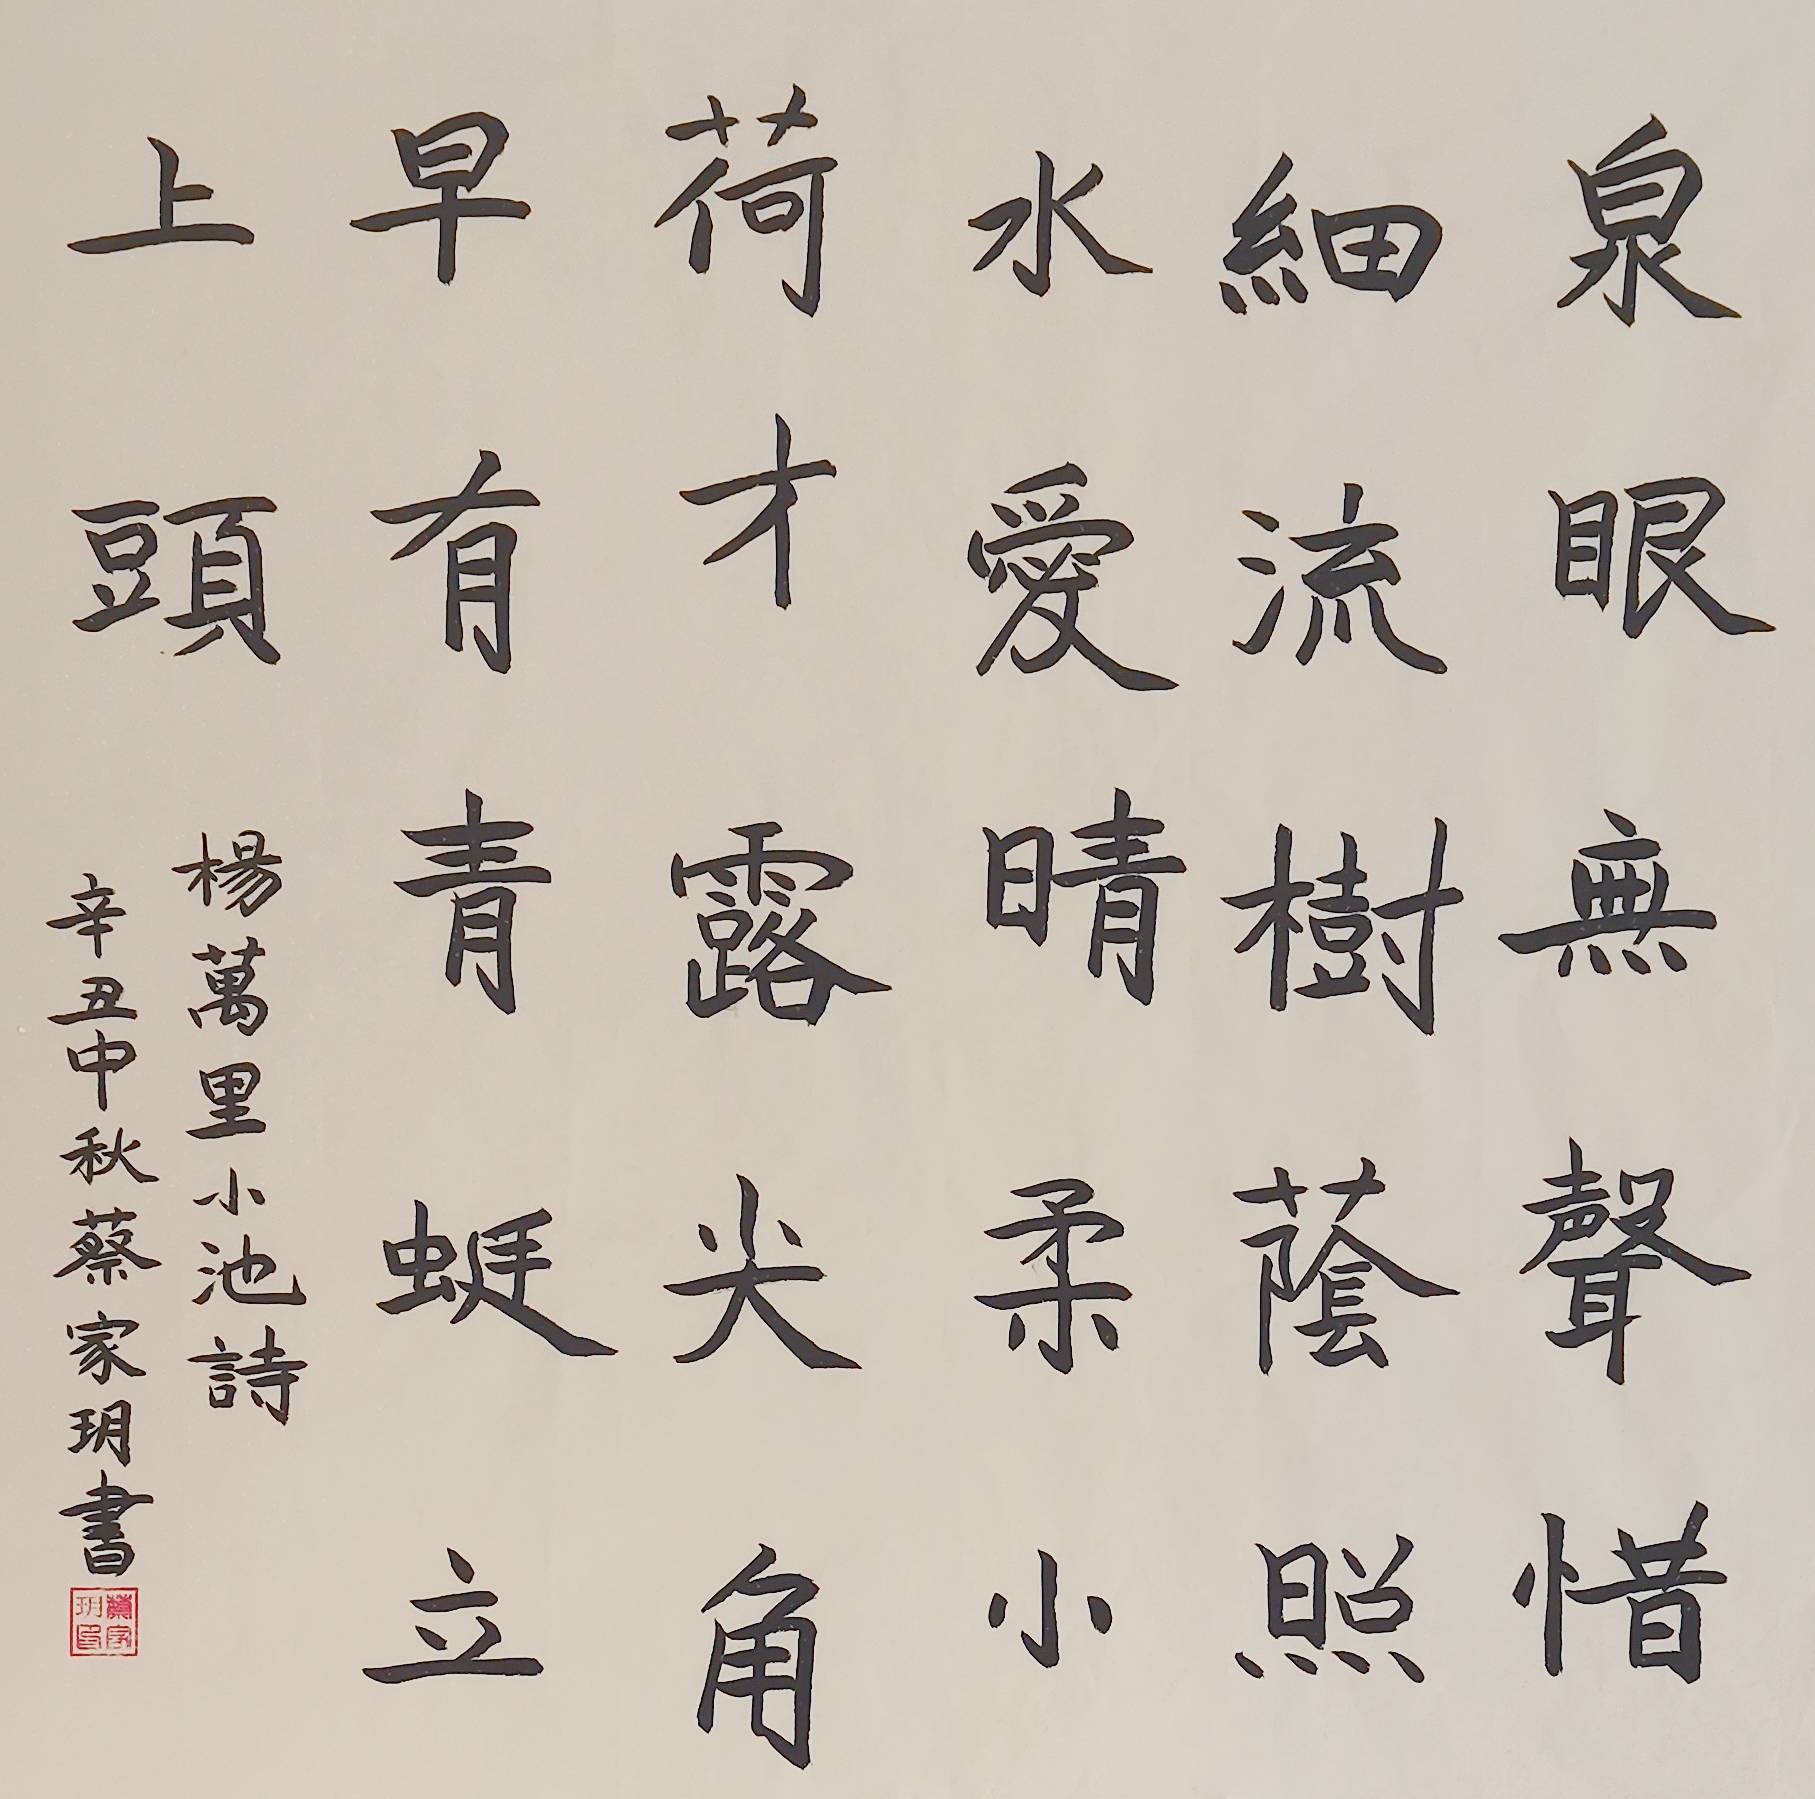 泉眼無聲惜
細流樹蔭照
水愛晴柔小
荷才露尖角
早有青蜓立
上頭
楊萬里小池詩
辛丑中秋蔡家玥書
蔡家玥印